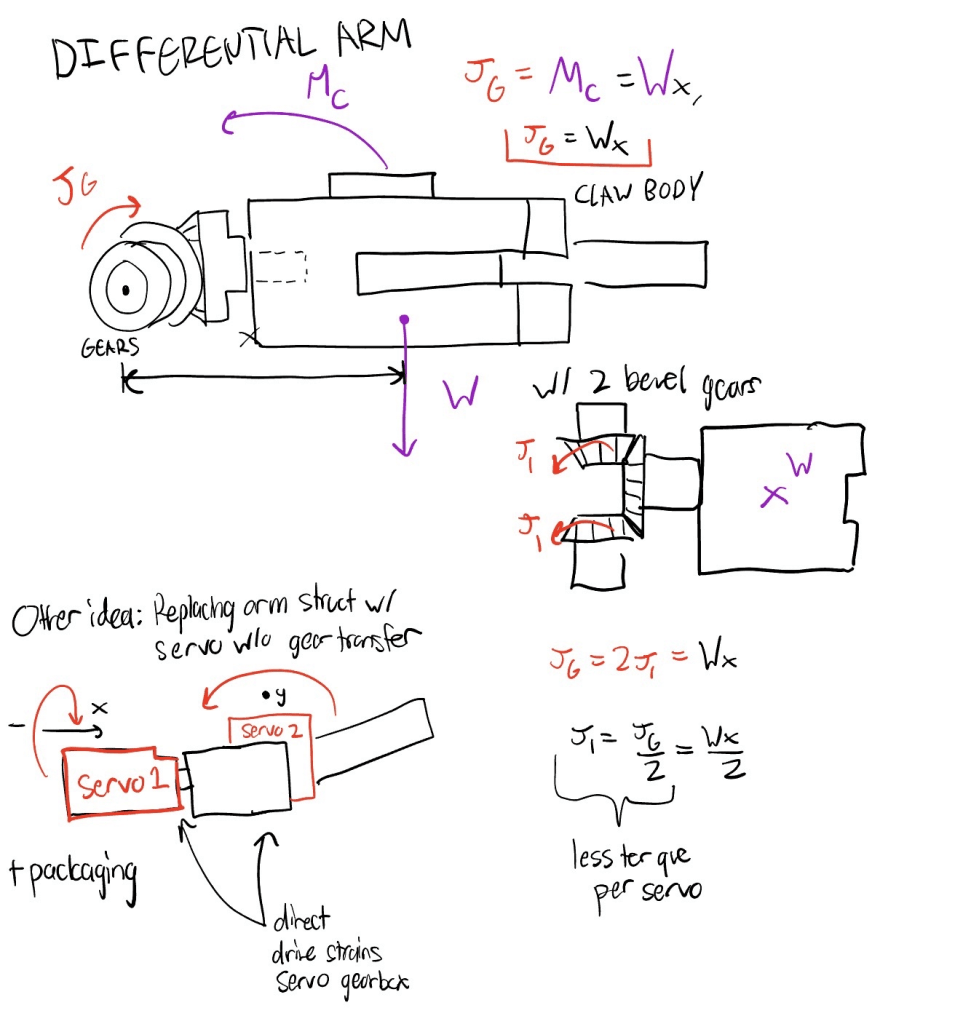 DIFFERENTIAL ARM
M_C
J_G = M_C = Wx,
J_G = Wx
J_G
CLAW BODY
GEARS
W
w/ 2 bevel gears
J_1
W
x
J_1
Other idea: Replacing arm struct w/
servo w/o gear transfer
J_G = 2J_1 = Wx
- x
•y
servo 2
Servo 1
J_1 = J_G/2 = Wx/2
+ packaging
less torque
per servo
direct
drive strains
servo gearbox